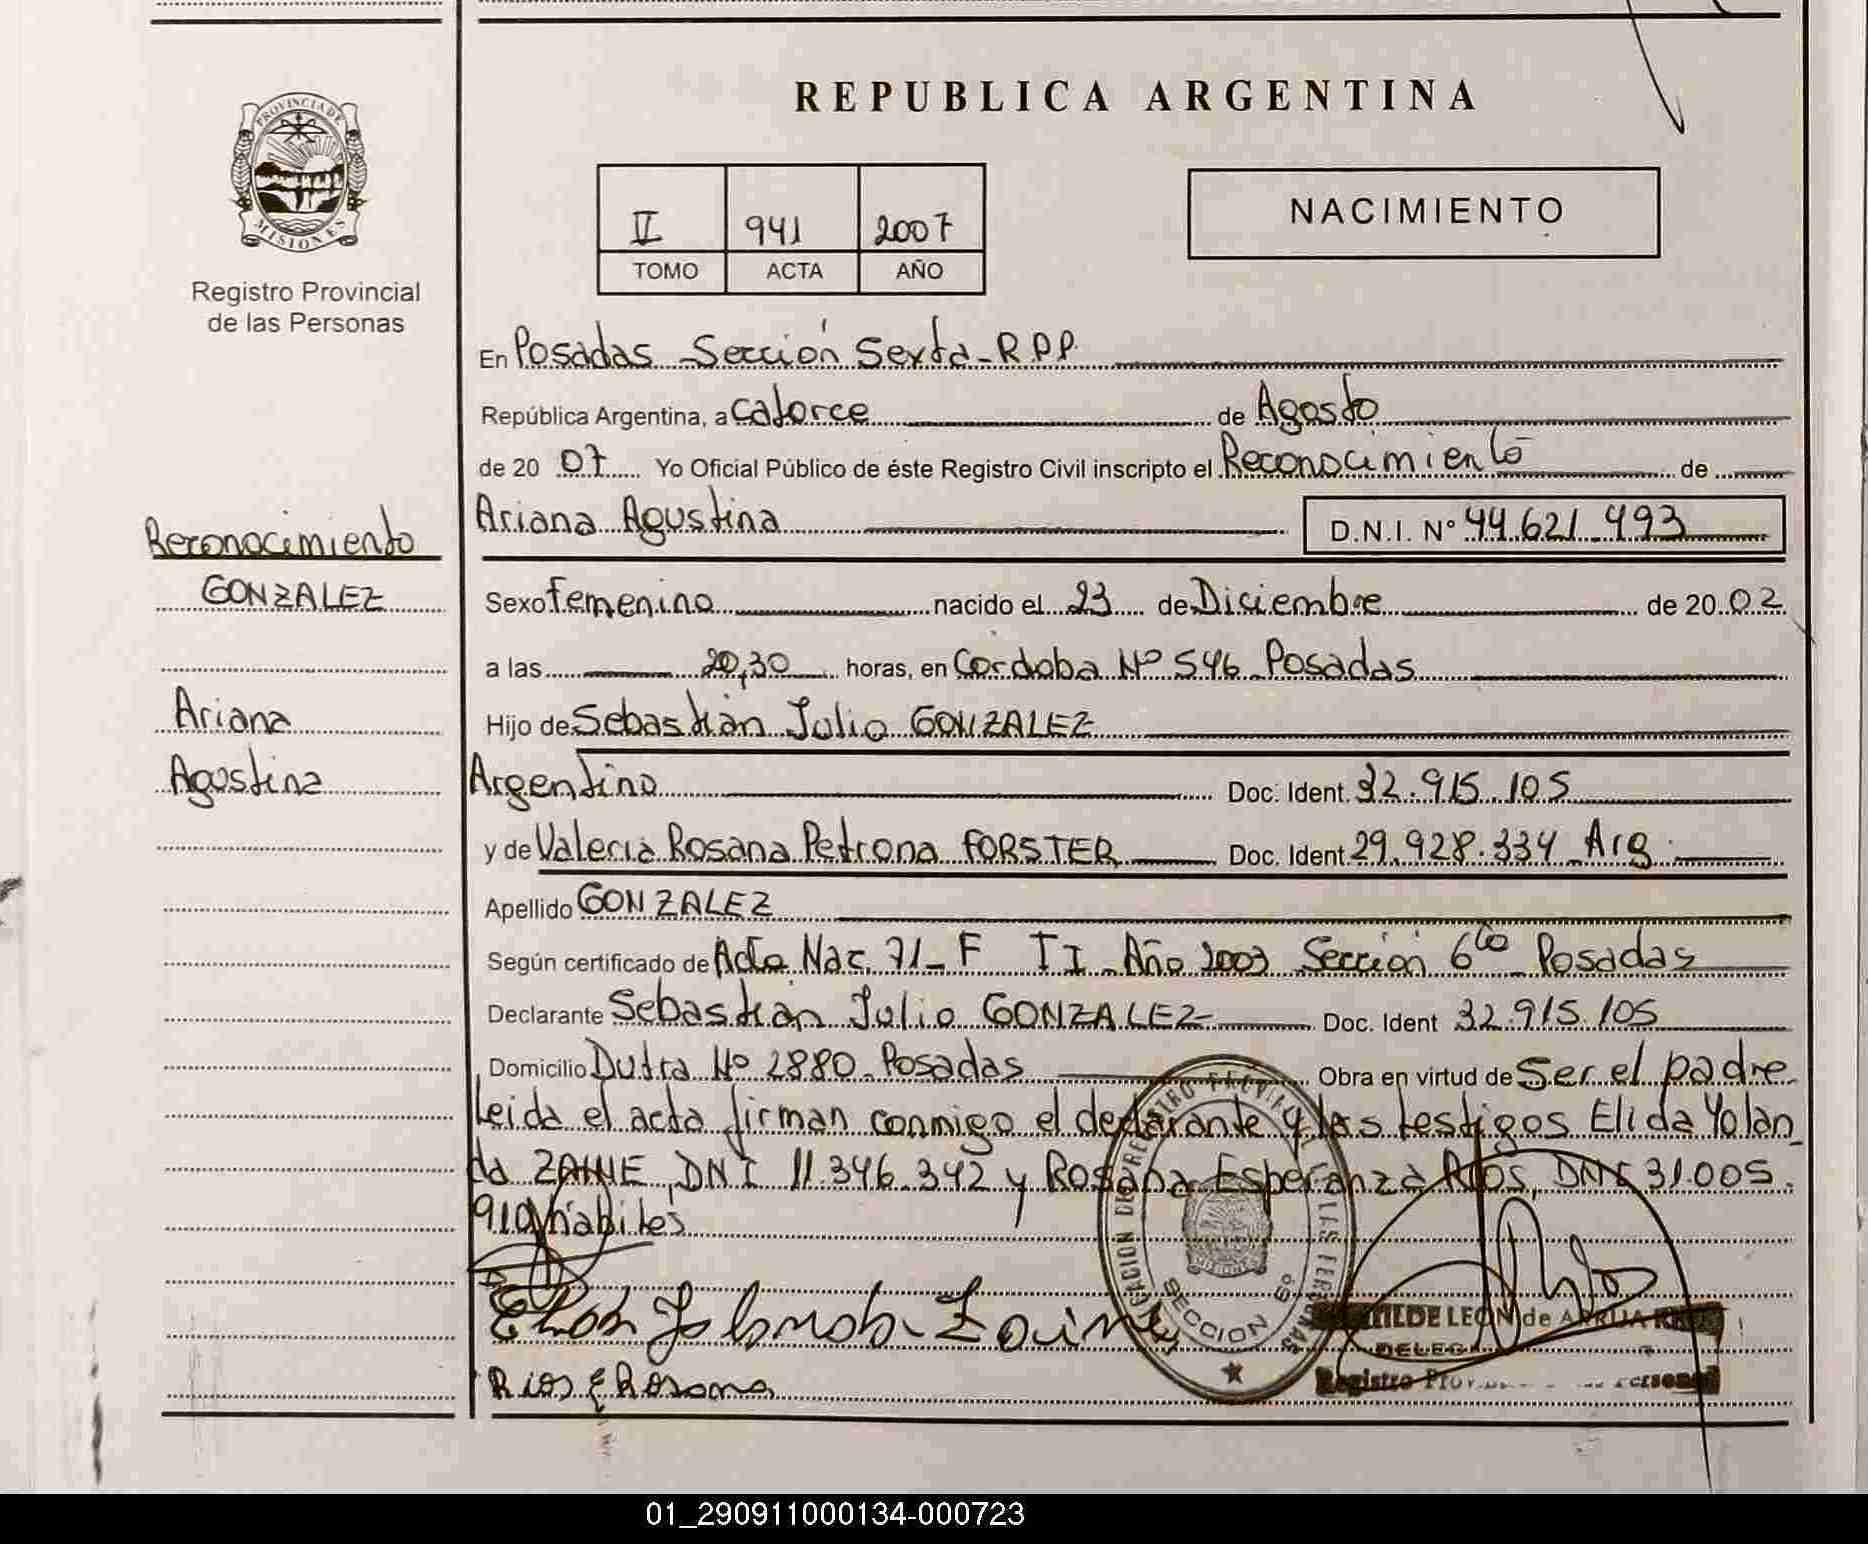 REPUBLICA ARGENTINA
PROVINCIA DE
MISIONES
Registro Provincial
de las Personas
II 941 2007
TOMO ACTA AÑO
NACIMIENTO
En Posadas Sección Sexta - R.P.P.
República Argentina, a catorce de Agosto
de 20 07 Yo Oficial Público de éste Registro Civil inscripto el Reconocimiento de
Ariana Agustina D.N.I. Nº 44.621.493
Reconocimiento
GONZALEZ
Ariana
Agustina
Sexo femenino nacido el 23 de Diciembre de 20 02
a las 20,30 horas, en Cordoba Nº 546 Posadas
Hijo de Sebastián Julio GONZALEZ
Argentino Doc. Ident. 32.915.105
y de Valeria Rosana Petrona FORSTER Doc. Ident. 29.928.334 Arg.
Apellido GONZALEZ
Según certificado de Acta Nac. 71 - F TI Año 2003 Sección 6ta Posadas
Declarante Sebastián Julio GONZALEZ Doc. Ident 32.915.105
Domicilio Dutra Nº 2880 Posadas Obra en virtud de Ser el padre
Leida el acta firman conmigo el declarante y los testigos Elida Yolan
da ZAINE, DNI 11.346.342 y Rosana Esperanza Rios, DNI 31.005.
910 habiles
SECCION 6º
LEON de
Rios E Rosana
Registro
01_290911000134-000723